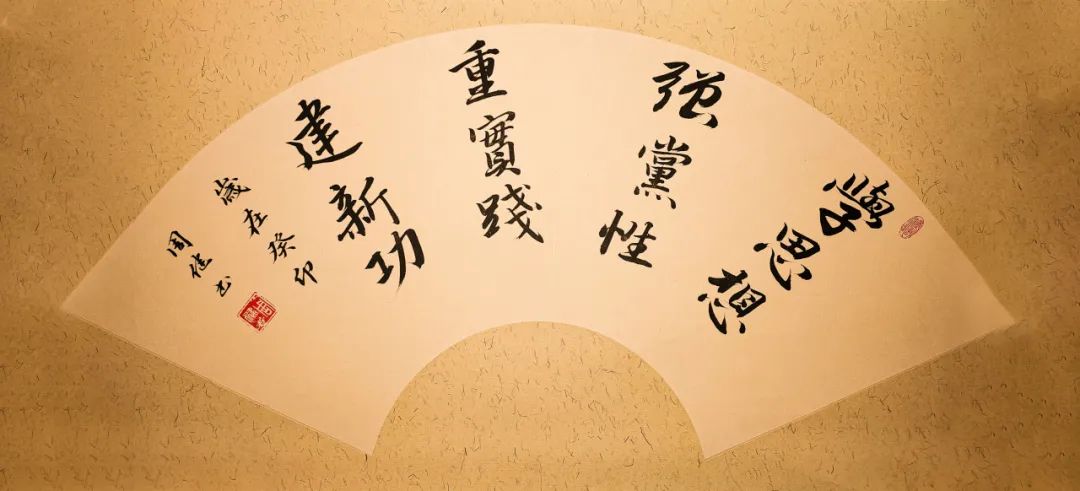 學思想
强黨性
重實踐
建新功
歲在癸卯
周继书